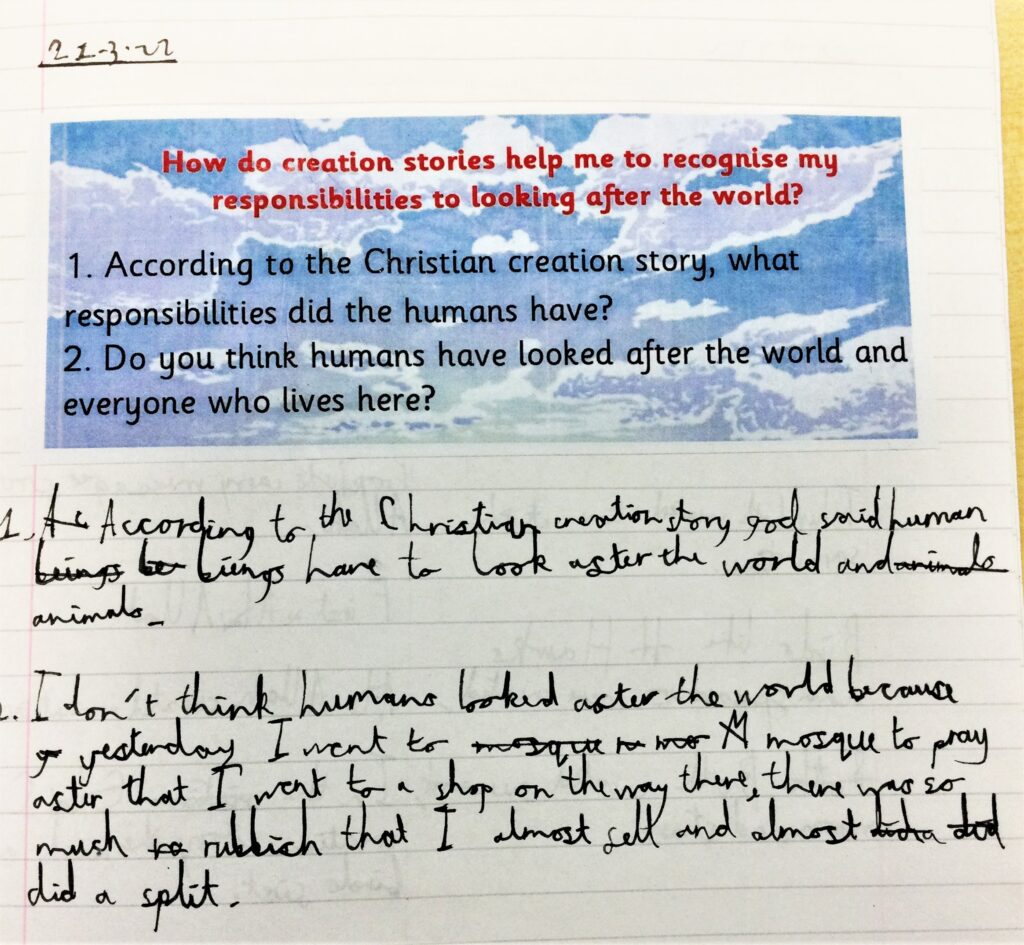 21-3-22
How do creation stories help me to recognise my
responsibilities to looking after the world?
1. According to the Christian creation story, what
responsibilities did the humans have?
2. Do you think humans have looked after the world and
everyone who lives here?
1. Ac According to the Christian creation story god said human
beings be biengs have to look aster the world and animals
animals
2. I don't think humans looked aster the world because
yesterday I went to mosque mosque to pray
aster that I went to a shop on the way there, there was so
much rubbich that I almost sell and almost did
did a split.